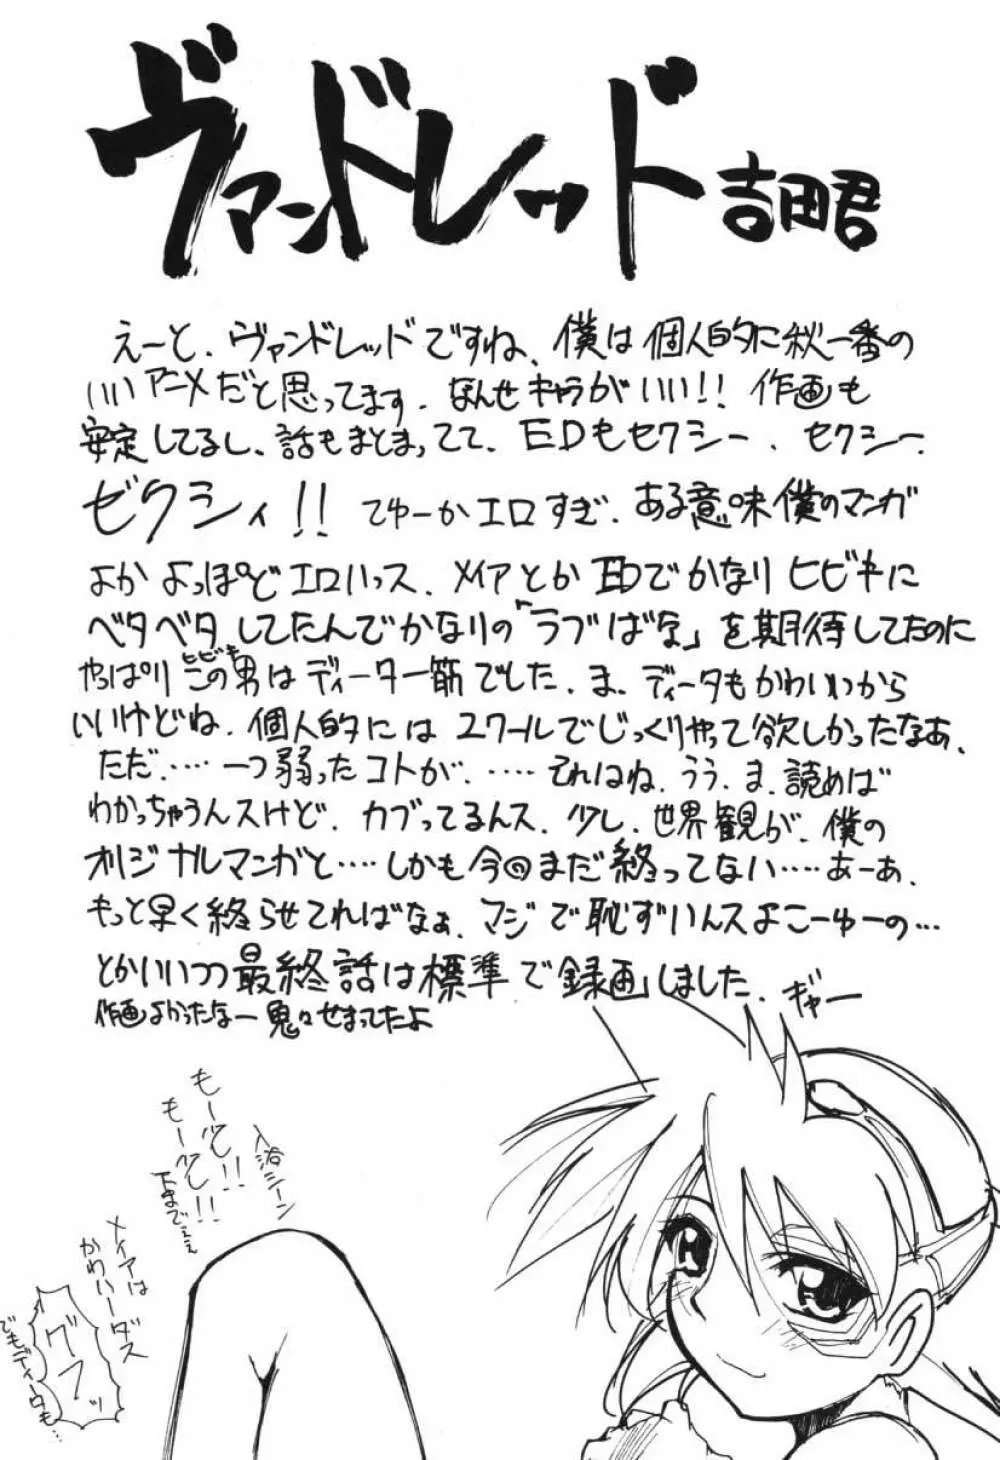 ヴァンドレッド 吉田君
えーと、ヴァンドレッドですね、僕は個人的に秋一番の
いいアニメだと思ってます。なんせキャラがいい!! 作画も
安定してるし、話もまとまってて、EDもセクシー、セクシー、
ゼクシィ!! てゆーかエロすぎ、ある意味僕のマンガ
よか よっぽどエロハっス、メイアとかEDでかなりヒビキに
ベタベタしてたんでかなりの「ラブばな」を期待してたのに
やっぱり この男はディーター筋でした、ま、ディータもかわいいから
ヒビキ
いいけどね、個人的には 2クールでじっくりやって欲しかったなあ、
ただ、……一つ弱ったコトが、……それはね、うう、ま、読めば
わかっちゃうんスけど、カブってるんス、少し、世界観が、僕の
オリジナルマンガと……しかも今回まだ終ってない……あーあ、
もっと早く終らせてればなぁ、マジで恥ずいんスよこーゆーの…
とかいいつつ最終話は標準で録画しました、ギャー
作画よかったなー 鬼々せまってたよ
入浴シーン
もーレし!!
もーレし!!
下までぇぇ
メイアは
かわいーダス
グフッ
でもディータも…